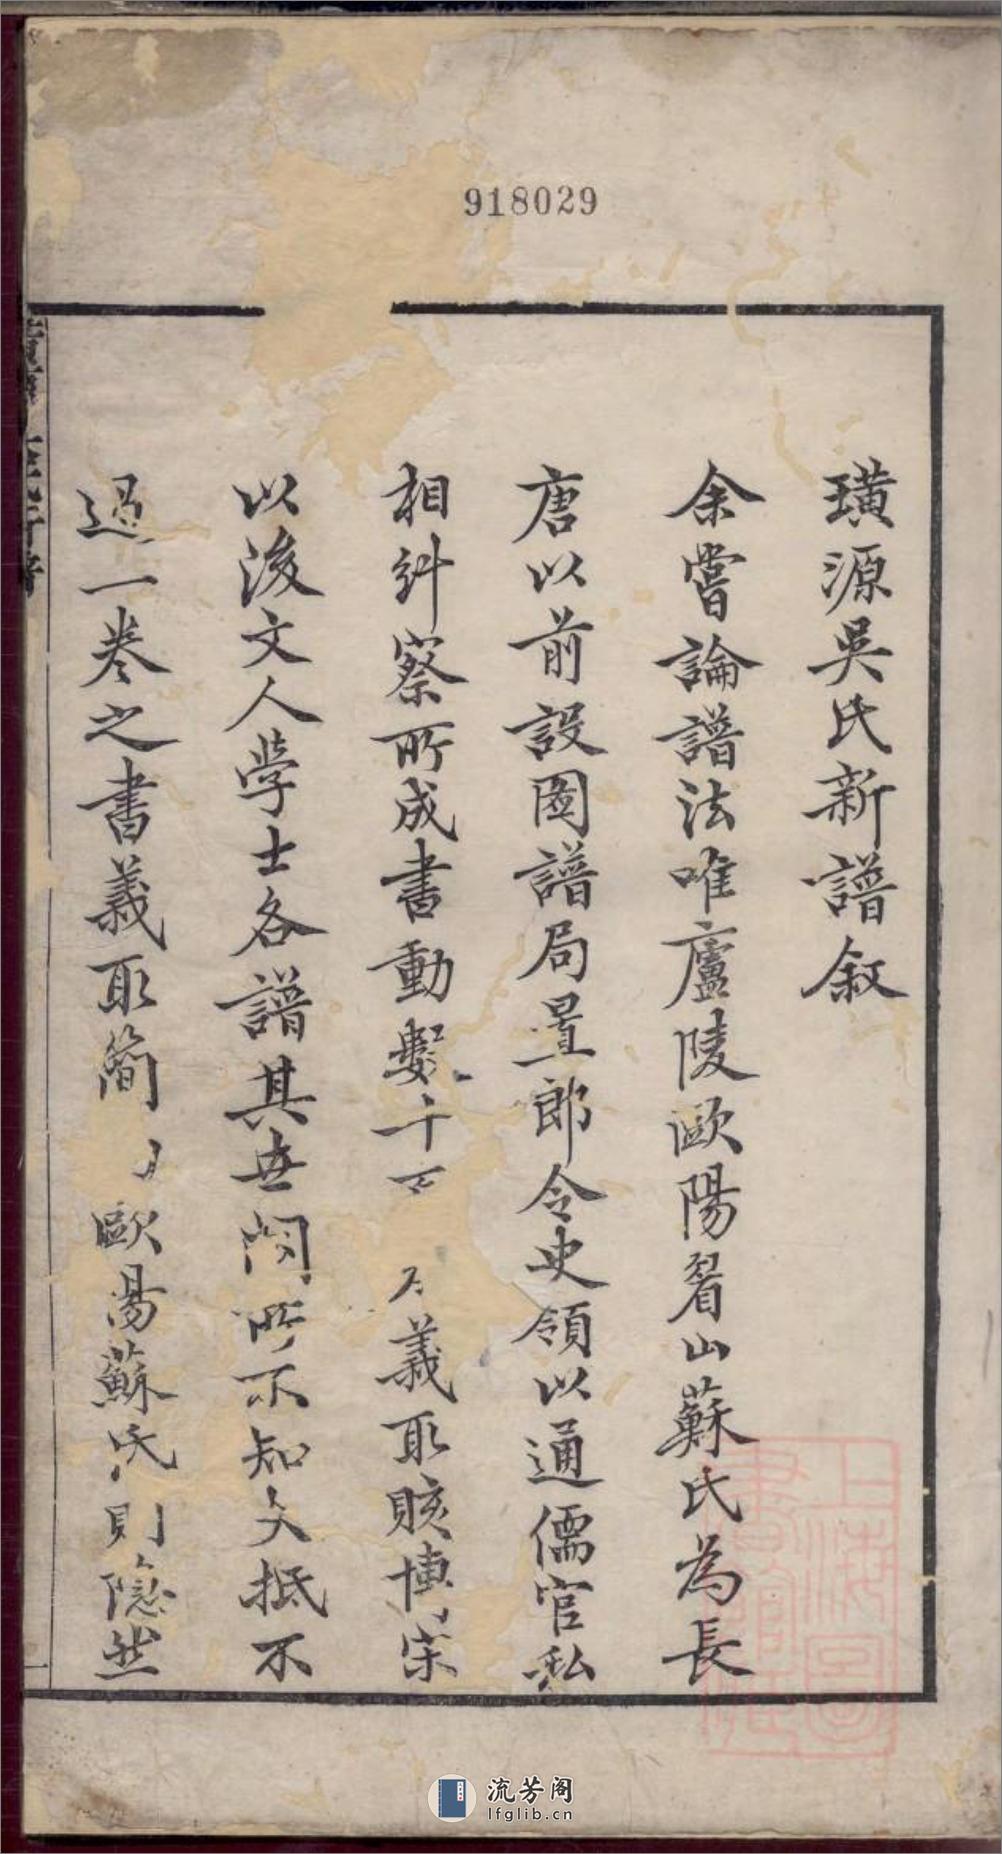 918029
璜源吳氏新譜叙
余嘗論譜法唯廬陵歐陽眉山蘇氏為長
唐以前設圖譜局置郎令史領以通儒官私
相糾察所成書動數千百義取賅博宋
以後文人學士各譜其世閥所不知大抵不
過一卷之書義取簡歐陽蘇氏則隐然
上海圖書館藏
流芳阁
lfglib.cn